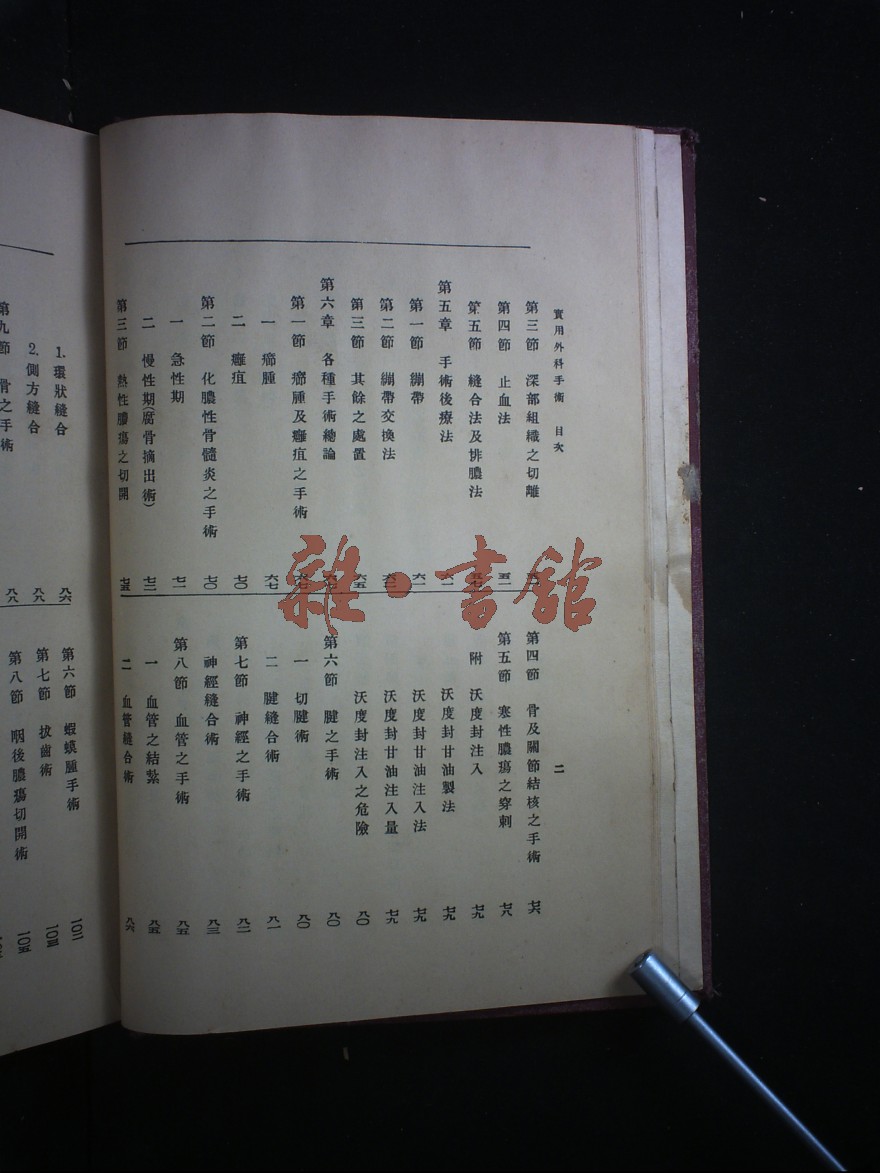 實用外科手術　目次
二
第三節　深部組織之切離
第四節　止血法　五一
第五節　縫合法及排膿法
第五章　手術後療法
第一節　繃帶　六一
第二節　繃帶交換法
第三節　其餘之處置　六五
第六章　各種手術總論
第一節　癤腫及癰疽之手術
一　癤腫　六七
二　癰疽　七〇
第二節　化膿性骨髓炎之手術　七〇
一　急性期　七一
二　慢性期(腐骨摘出術)　七二
第三節　熱性膿瘍之切開　七五
第四節　骨及關節結核之手術　七六
第五節　寒性膿瘍之穿刺　七八
附　沃度封注入　七九
沃度封甘油製法　七九
沃度封甘油注入法　七九
沃度封甘油注入量　七九
沃度封注入之危險　八〇
第六節　腱之手術　八〇
一　切腱術　八〇
二　腱縫合術　八一
第七節　神經之手術　八二
神經縫合術　八三
第八節　血管之手術　八五
一　血管之結紮　八五
二　血管縫合術　八六
1.環狀縫合　八六
2.側方縫合　八八
第九節　骨之手術　八八
第六節　蝦蟆腫手術　一〇二
第七節　拔齒術　一〇四
第八節　咽後膿瘍切開術　一〇五
雜·書館